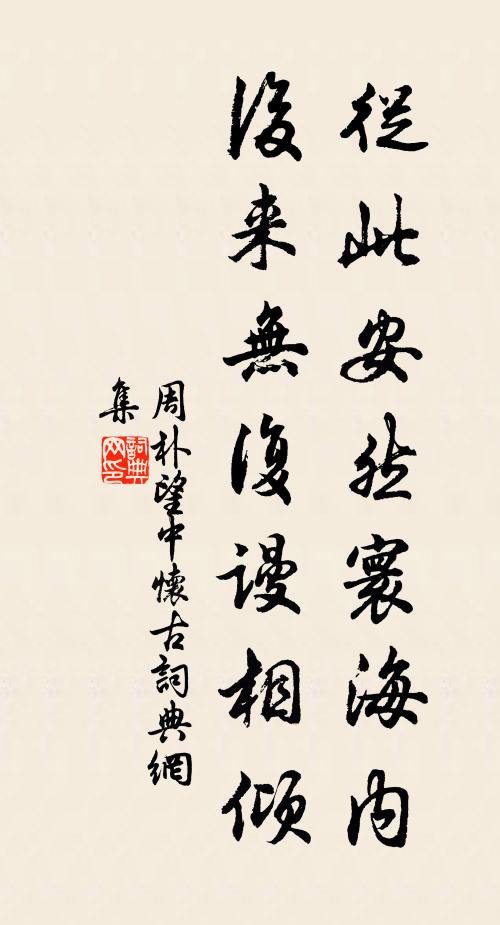 從此安然寰海内
後来無復謾相傾
周朴望中懷古詞典網
集
詞典网印